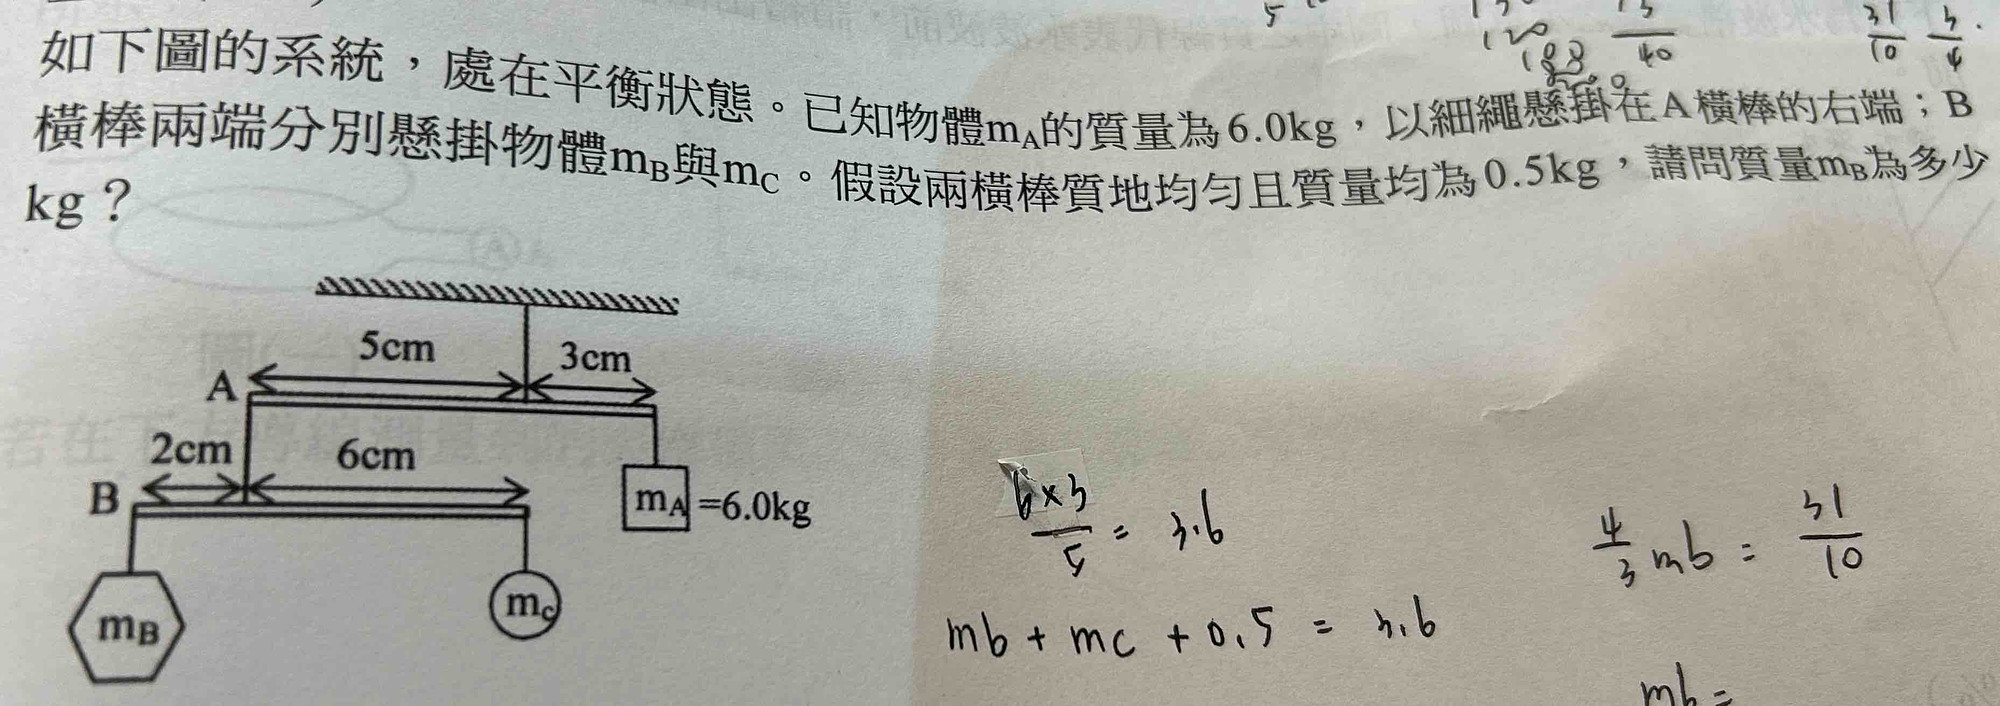 如下圖的系統，處在平衡狀態。已知物體mA的質量為6.0kg，以細繩懸掛在A橫棒的右端；B
橫棒兩端分別懸掛物體mB與mC。假設兩橫棒質地均勻且質量均為0.5kg，請問質量mB為多少
kg？
5cm
3cm
A
2cm
6cm
B
mA
=6.0kg
mB
mc
6×3
5
= 3.6
mb + mc + 0.5 = 3.6
4
3
mb =
31
10
mb =
120
40
31
10
3
4